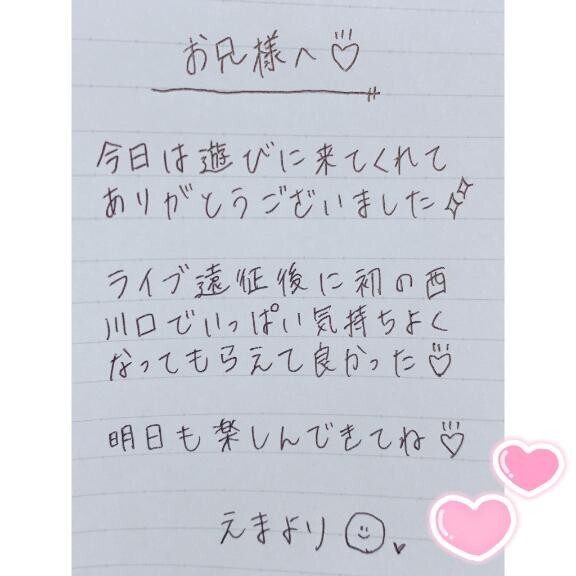 お兄様へ♡
今日は遊びに来てくれて
ありがとうございました
ライブ遠征後に初の西
川口でいっぱい気持ちよく
なってもらえて良かった♡
明日も楽しんできてね♡
えまより